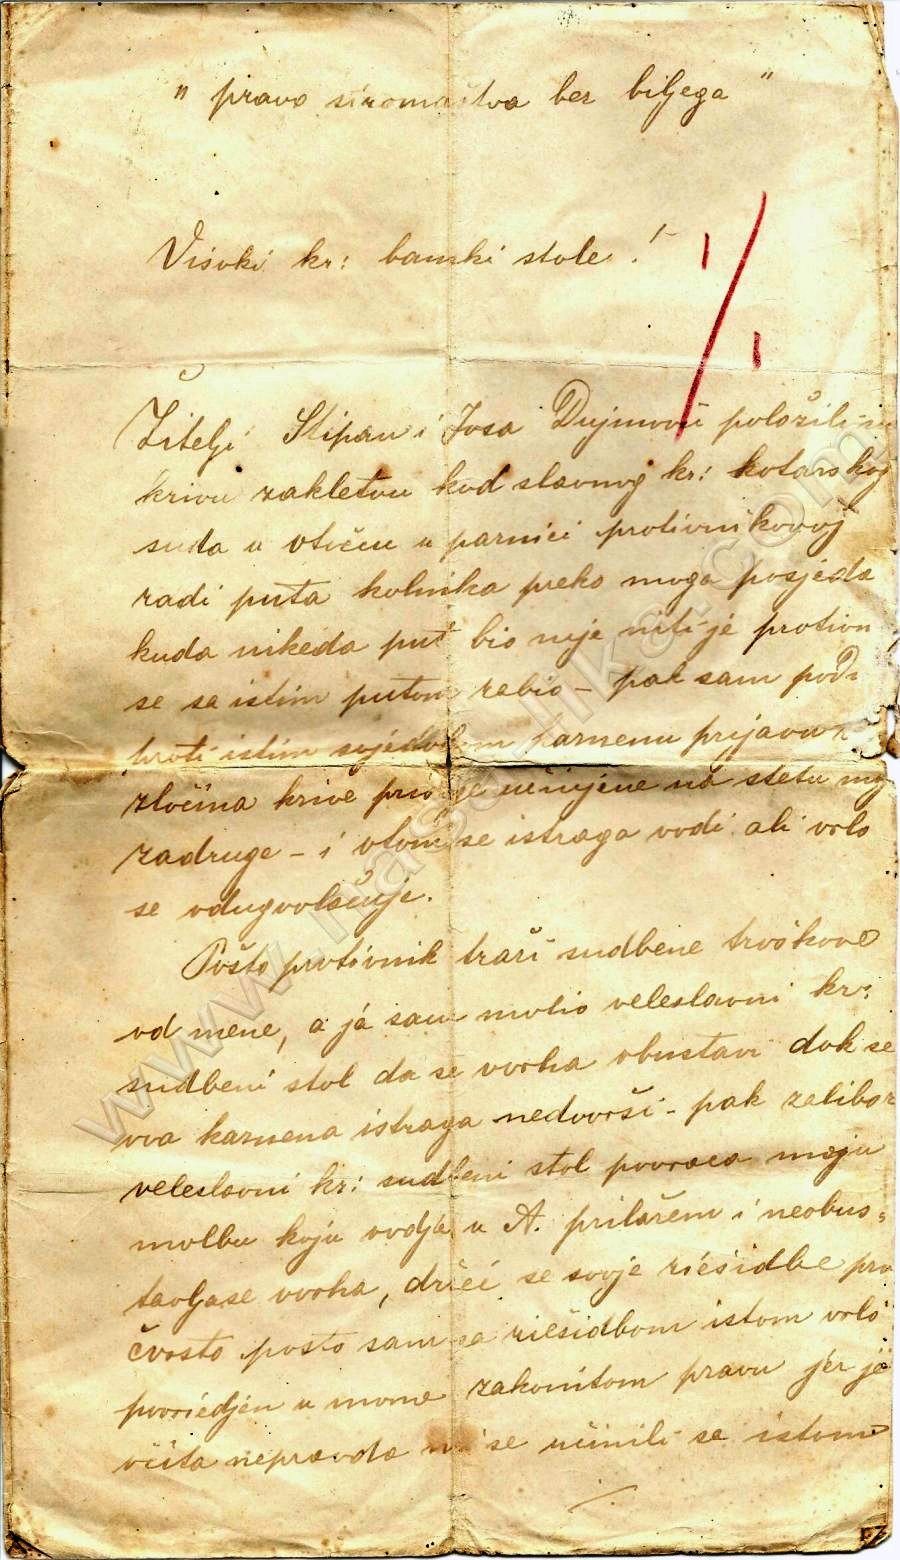 " pravo siromaštva bez biljega "
Visoki kr: banski stole!
1/1
Žitelji Stipan i Joso Dujmović položili su
krivu zakletvu kod slavnog kr: kotarskog
suda u Otočcu u parnici protivnikovoj
radi puta kolnika preko moga posjeda
kuda nikada put bio nije niti je protivn
se sa istim putom rabio - pak sam podi
proti istim svjedokom karnenu prijavu
zločina krive prisege učinjene na štetu moj
zadruge - i otom se istraga vodi ali vrlo
se odugovlačuje.
Pošto protivnik traži sudbene troškove
od mene, a ja sam molio veleslavni kr:
sudbeni stol da se ovrha obustavi dok se
ova karnena istraga nedovrši - pak zalibor
veleslavni kr: sudbeni stol povraća moju
molbu koju ovdje u A. priležem i neobus=
tavlja se ovrha, držeć se svoje riešidbe pre
čvrsto pošto sam sa riešidbom istom vrlo
povriedjen u mome zakonitom pravu jer je
očita nepravda mi se učinili sa istom
www.nasa-lika.com